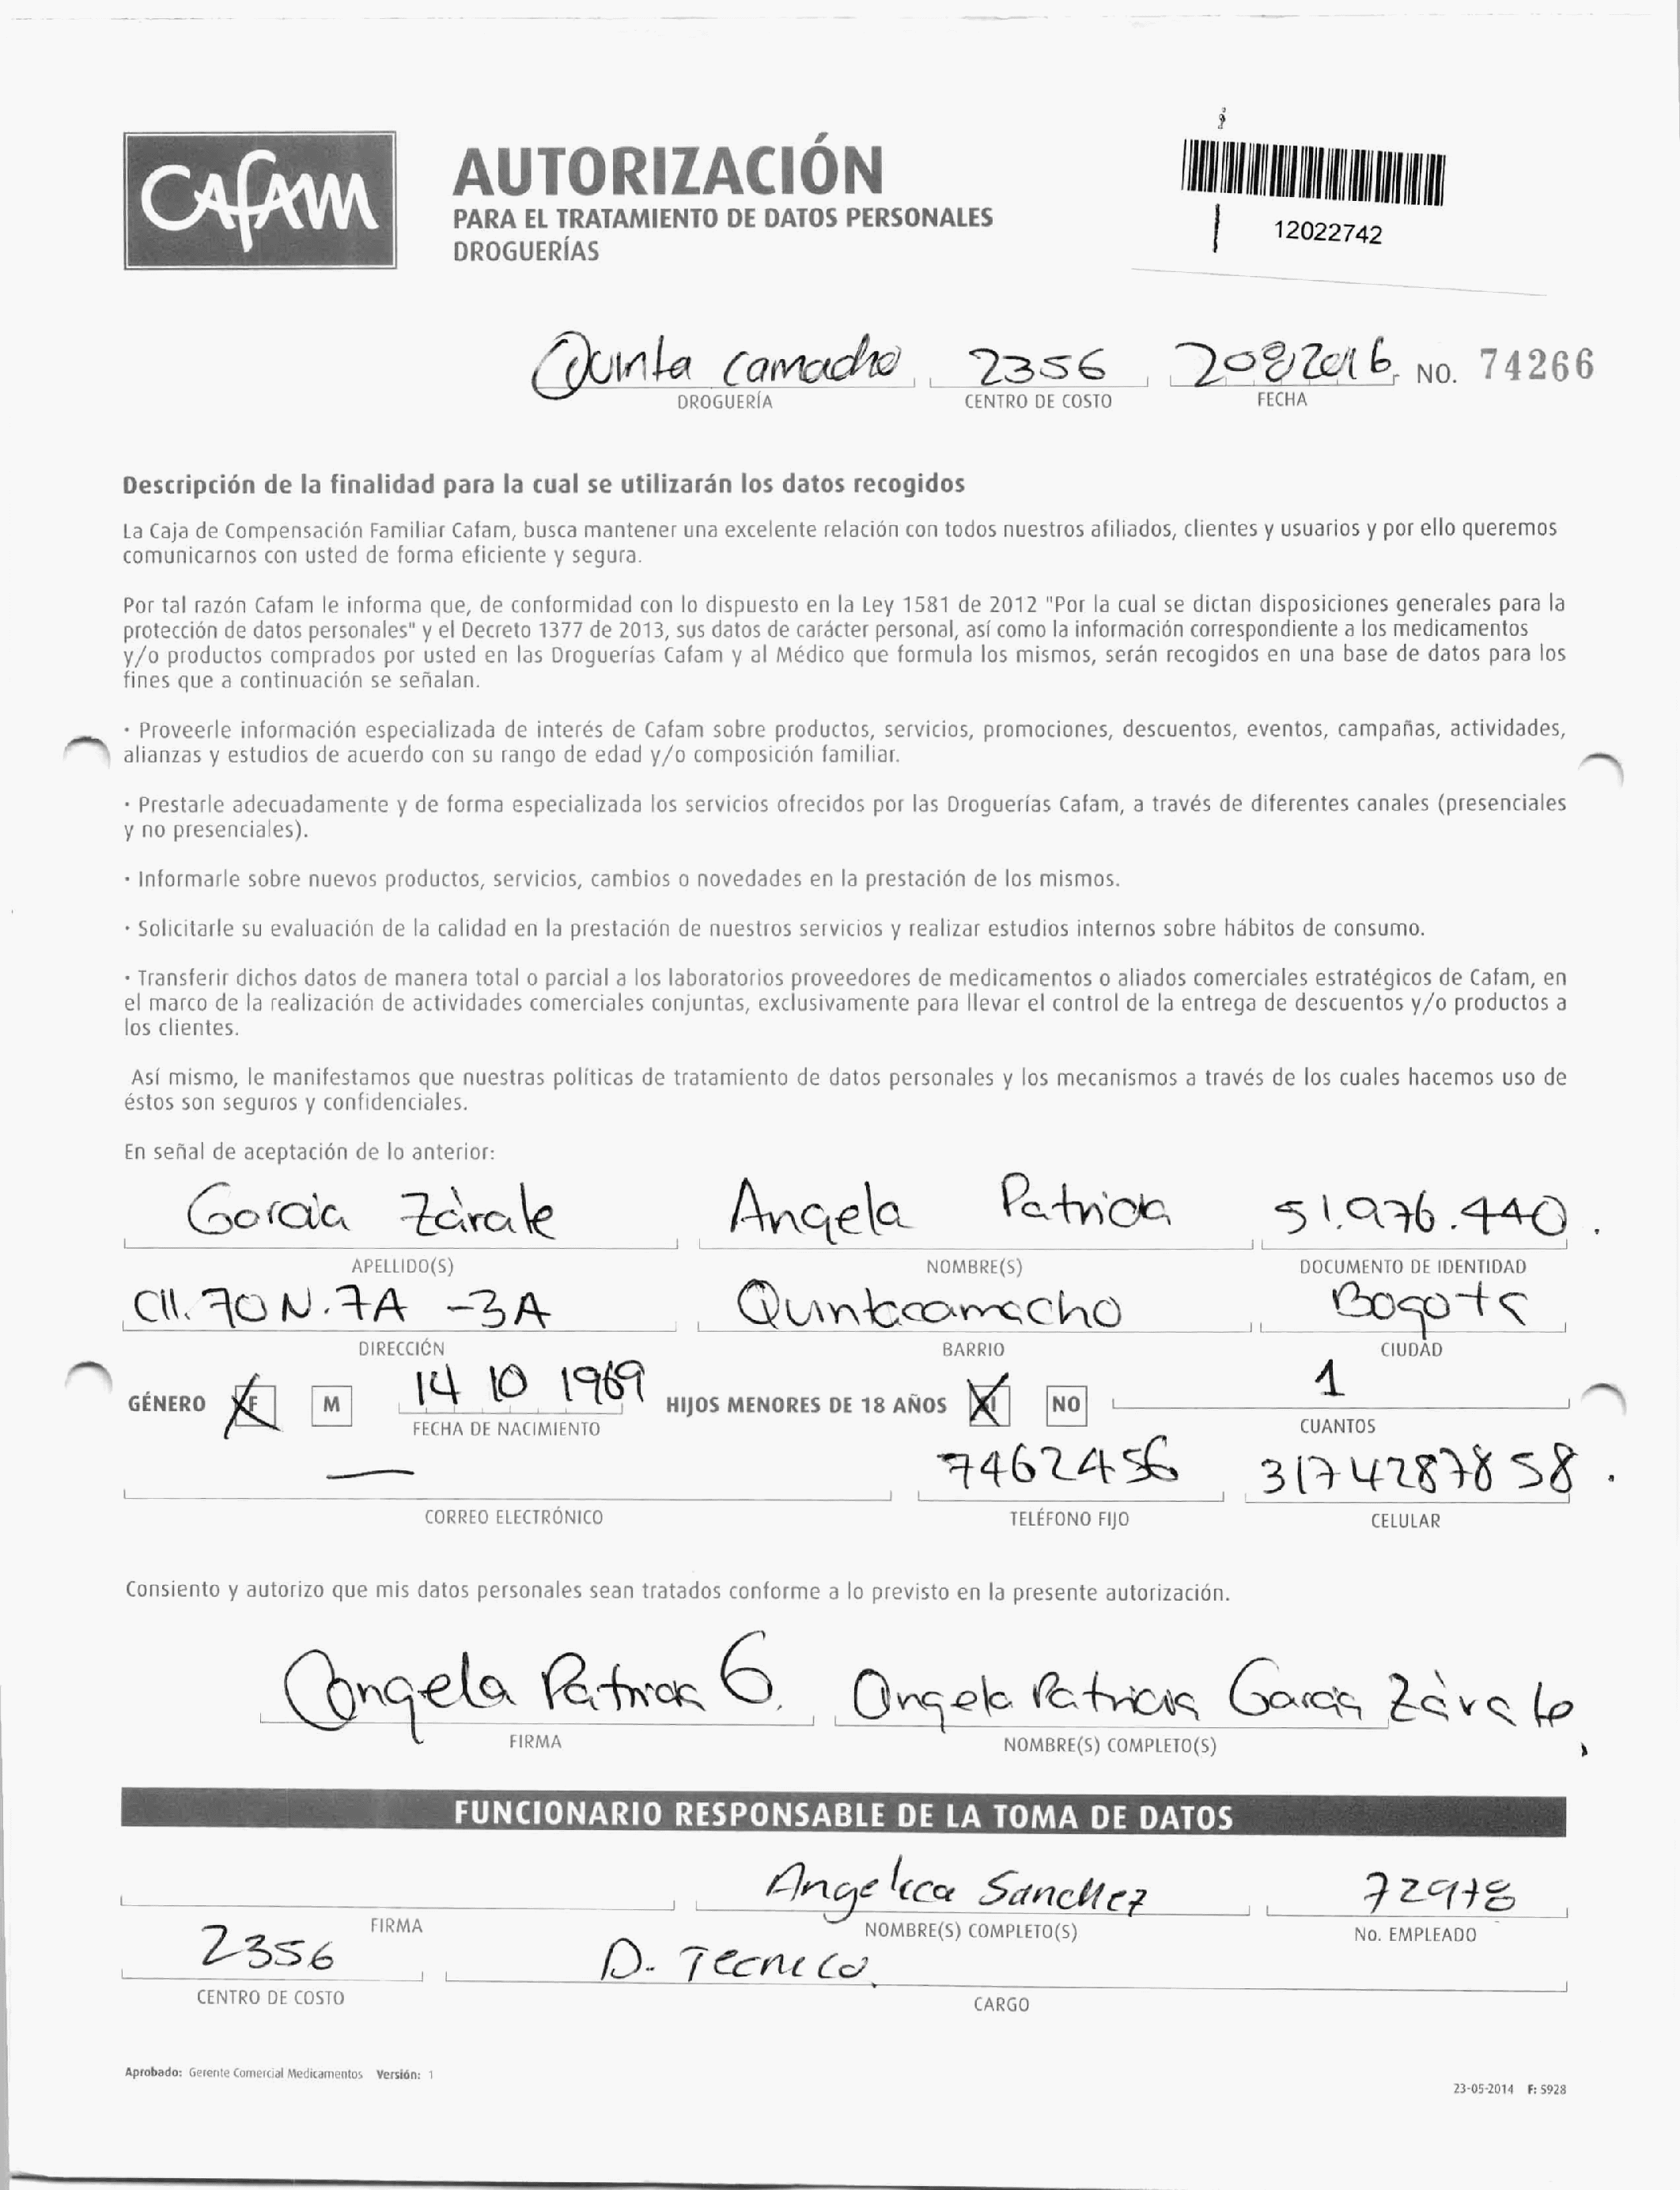 CAFAM
AUTORIZACIÓN
PARA EL TRATAMIENTO DE DATOS PERSONALES
DROGUERÍAS
12022742
Quinta Camacho 2356 2082016 NO. 74266
DROGUERÍA CENTRO DE COSTO FECHA
Descripción de la finalidad para la cual se utilizarán los datos recogidos
La Caja de Compensación Familiar Cafam, busca mantener una excelente relación con todos nuestros afiliados, clientes y usuarios y por ello queremos
comunicarnos con usted de forma eficiente y segura.
Por tal razón Cafam le informa que, de conformidad con lo dispuesto en la Ley 1581 de 2012 "Por la cual se dictan disposiciones generales para la
protección de datos personales" y el Decreto 1377 de 2013, sus datos de carácter personal, así como la información correspondiente a los medicamentos
y/o productos comprados por usted en las Droguerías Cafam y al Médico que formula los mismos, serán recogidos en una base de datos para los
fines que a continuación se señalan.
· Proveerle información especializada de interés de Cafam sobre productos, servicios, promociones, descuentos, eventos, campañas, actividades,
alianzas y estudios de acuerdo con su rango de edad y/o composición familiar.
· Prestarle adecuadamente y de forma especializada los servicios ofrecidos por las Droguerías Cafam, a través de diferentes canales (presenciales
y no presenciales).
· Informarle sobre nuevos productos, servicios, cambios o novedades en la prestación de los mismos.
· Solicitarle su evaluación de la calidad en la prestación de nuestros servicios y realizar estudios internos sobre hábitos de consumo.
· Transferir dichos datos de manera total o parcial a los laboratorios proveedores de medicamentos o aliados comerciales estratégicos de Cafam, en
el marco de la realización de actividades comerciales conjuntas, exclusivamente para llevar el control de la entrega de descuentos y/o productos a
los clientes.
Así mismo, le manifestamos que nuestras políticas de tratamiento de datos personales y los mecanismos a través de los cuales hacemos uso de
éstos son seguros y confidenciales.
En señal de aceptación de lo anterior:
Garcia Zàrate Angela Patricia 51.976.440.
APELLIDO(S) NOMBRE(S) DOCUMENTO DE IDENTIDAD
Cll. 70 N. 7A -3A Quintacamacho Bogota
DIRECCIÓN BARRIO CIUDAD
GÉNERO F M 14 10 1969 HIJOS MENORES DE 18 AÑOS SI NO 1
FECHA DE NACIMIENTO CUANTOS
— 7462456 3174287858.
CORREO ELECTRÓNICO TELÉFONO FIJO CELULAR
Consiento y autorizo que mis datos personales sean tratados conforme a lo previsto en la presente autorización.
Angela Patricia G. Angela Patricia Garcia Zàrate
FIRMA NOMBRE(S) COMPLETO(S)
FUNCIONARIO RESPONSABLE DE LA TOMA DE DATOS
Angelica Sanchez 72978
FIRMA NOMBRE(S) COMPLETO(S) No. EMPLEADO
2356 D. Tecnico.
CENTRO DE COSTO CARGO
Aprobado: Gerente Comercial Medicamentos Versión: 1
23-05-2014 F: 5928